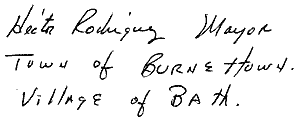 Hector Rodriguez Mayor
Town of Burnettown.
Village of Bath.